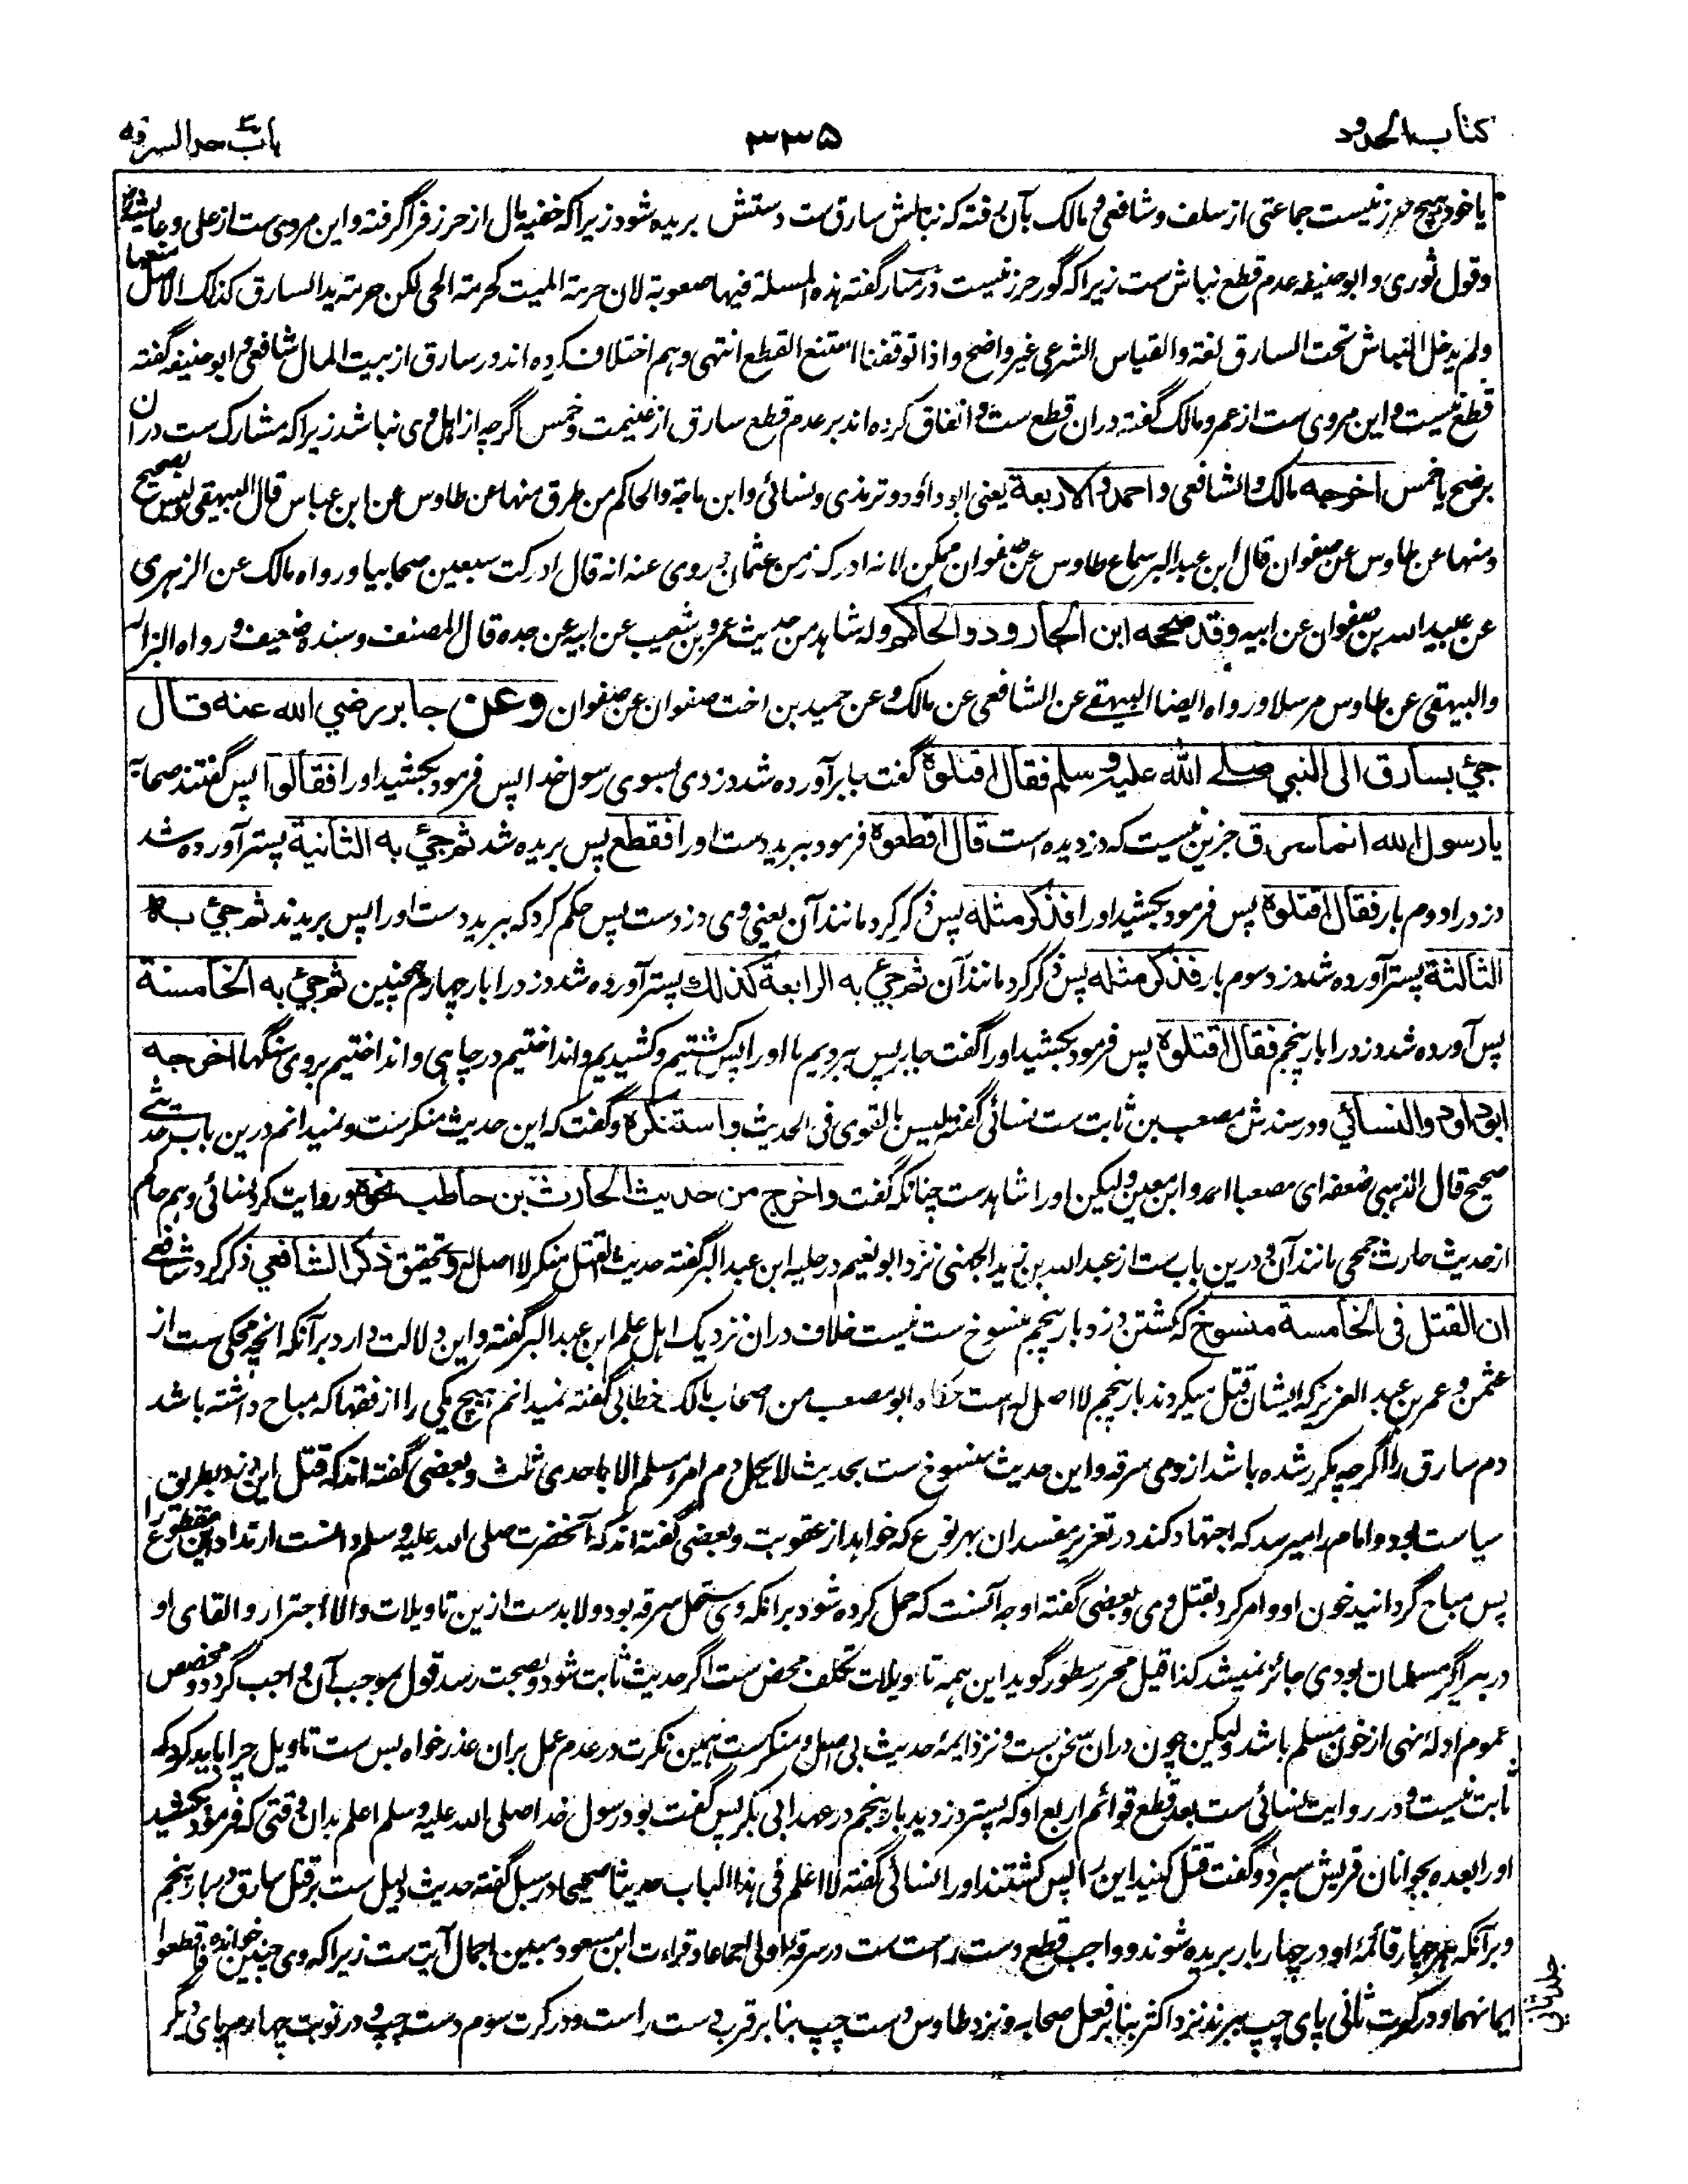 کتاب الحدود
۳۳۵
باب حد السرقه
یا خود هیچ حرز نیست جماعتی از سلف و شافعی و مالک بآن رفته که نباش سارق ست دستش بریده شود زیرا که خفیه مال از حرز فرا گرفته و این مروی ست از علی و عایشه رض
و قول ثوری و ابو حنیفه عدم قطع نباش ست زیرا که گور حرز نیست در منار گفته هذه المسئلة فیها صعوبة لان حرمة المیت کحرمة الحی لکن حرمة ید السارق کذلک الاصل منعها
ولم یدخل النباش تحت السارق لغة والقیاس الشرعی غیر واضح واذا توقفنا امتنع القطع انتهی و هم اختلاف کرده اند در سارق از بیت المال شافعی و ابو حنیفه گفته
قطع نیست و این مروی ست از عمر و مالک گفته دران قطع ست و اتفاق کرده اند بر عدم قطع سارق از غنیمت و خمس اگرچه از اهل وی نباشد زیرا که مشارک ست دران
برضخ یا خمس اخرجه مالک والشافعی واحمد والاربعة یعنی ابو داؤد و ترمذی و نسائی و ابن ماجه والحاکم من طرق منها عن طاوس عن ابن عباس قال البیهقی ولیس بصحیح
ومنها عن طاوس عن صفوان قال ابن عبد البر سماع طاوس عن صفوان ممکن لانه ادرک زمن عثمان و روی عنه انه قال ادرکت سبعین صحابیا ورواه مالک عن الزهری
عن عبید الله بن صفوان عن ابیه وقد صححه ابن الجارود والحاکم وله شاهد من حدیث عمرو بن شعیب عن ابیه عن جده قال المصنف وسنده ضعیف ورواه البزار
والبیهقی عن طاوس مرسلا ورواه ایضا البیهقی عن الشافعی عن مالک و عن حمید بن اخت صفوان عن صفوان وعن جابر رضي الله عنه قال
جيئ بسارق الی النبي صلے الله علیه وسلم فقال اقتلوه گفت جابر آورده شد دزدی بسوی رسول خدا پس فرمود بکشید او را فقالوا پس گفتند صحابه
یا رسول الله انما سرق جز این نیست که دزدیده است قال اقطعوه فرمود ببرید دست او را فقطع پس بریده شد ثم جيئ به الثانیة پستر آورده شد
دزد را دوم بار فقال اقتلوه پس فرمود بکشید او را فذکر مثله پس ذکر کرد مانند آن یعنی وی دزدست پس حکم کرد که ببرید دست او را پس بریدند ثم جيئ به
الثالثة پستر آورده شد دزد سوم بار فذکر مثله پس ذکر کرد مانند آن ثم جيئ به الرابعة کذلك پستر آورده شد دزد را بار چهارم همچنین ثم جيئ به الخامسة
پس آورده شد دزد را بار پنجم فقال اقتلوه پس فرمود بکشید او را گفت جابر پس بردیم ما او را پس کشتیم و کشیدیم و انداختیم در چاهی و انداختیم بروی سنگها اخرجه
ابو داود والنسائي و در سندش مصعب بن ثابت ست نسائی گفته لیس بالقوی فی الحدیث واستنکره و گفت که این حدیث منکرست و نمیدانم درین باب حدیثے
صحیح قال الذهبی ضعفه ای مصعبا احمد وابن معین ولیکن او را شاهدست چنانکه گفت واخرج من حدیث الحارث بن حاطب نحوه و روایت کرد نسائی و هم حاکم
از حدیث حارث جمحی مانند آن و درین باب ست از عبد الله بن زید الجهنی نزد ابو نعیم در حلیه ابن عبد البر گفته حدیث القتل منکر لا اصل له و تحقیق ذکر الشافعي ذکر کرد شافعے
ان القتل فی الخامسة منسوخ که کشتن دزد بار پنجم منسوخ ست نیست خلاف دران نزدیک اهل علم ابن عبد البر گفته و این دلالت دارد برآنکه آنچه محکی ست از
عثمن و عمر بن عبد العزیز که ایشان قتل میکردند بار پنجم لا اصل له است حکاه ابو مصعب من اصحاب مالک خطابی گفته نمیدانم هیچ یکی را از فقها که مباح داشته باشد
دم سارق را اگرچه مکرر شده باشد از وی سرقه و این حدیث منسوخ ست بحدیث لا یحل دم امرء مسلم الا باحدی ثلث و بعضی گفته اند که قتل این دزد بطریق
سیاست بود و امام را میرسد که اجتهاد کند در تعزیر مفسدان بهر نوع که خواهد از عقوبت و بعضی گفته اند که آنحضرت صلی الله علیه وسلم دانست ارتداد این مقطوع را
پس مباح گردانید خون او و امر کرد بقتل وی و بعضی گفته اوجه آنست که حمل کرده شود برآنکه وی مستحل سرقه بود و لابدست ازین تاویلات والا اجترار و القای او
در بیر اگر مسلمان بودی جائز نمیشد کذا قیل محرر سطور گوید این همه تاویلات تکلف محض ست اگر حدیث ثابت شود و بصحت رسد قول بموجب آن واجب گردد و مخصص
عموم ادلهٔ نهی از خون مسلم باشد ولیکن چون دران سخن ست و نزد ایمهٔ حدیث بی اصل و منکرست همین نکرت در عدم عمل بران عذر خواه بس ست تاویل چرا باید کرد که
ثابت نیست و در روایت نسائی ست بعد قطع قوائم اربع او که پستر دزدید بار پنجم در عهد ابی بکر پس گفت بود رسول خدا صلی الله علیه وسلم اعلم بدان وقتی که فرمود بکشید
او را بعده بجوانان قریش سپرد و گفت قتل کنید این را پس کشتند او را نسائی گفته لا اعلم فی هذا الباب حدیثا صحیحا در سبل گفته حدیث دلیل ست بر قتل سارق در بار پنجم
و برآنکه هر چهار قائمهٔ او در چهار بار بریده شوند و واجب قطع دست راست ست در سرقهٔ اولی اجماعا و قراءت ابن مسعود مبین اجمال آیت ست زیرا که وی چنین خوانده فاقطعوا
ایمانهما و در کرت ثانی پای چپ ببرند نزد اکثر بنابر فعل صحابه و نزد طاوس دست چپ بنابر قرب دست راست و در کرت سوم دست چپ و در نوبت چهارم پای دیگر
جلد ثانی